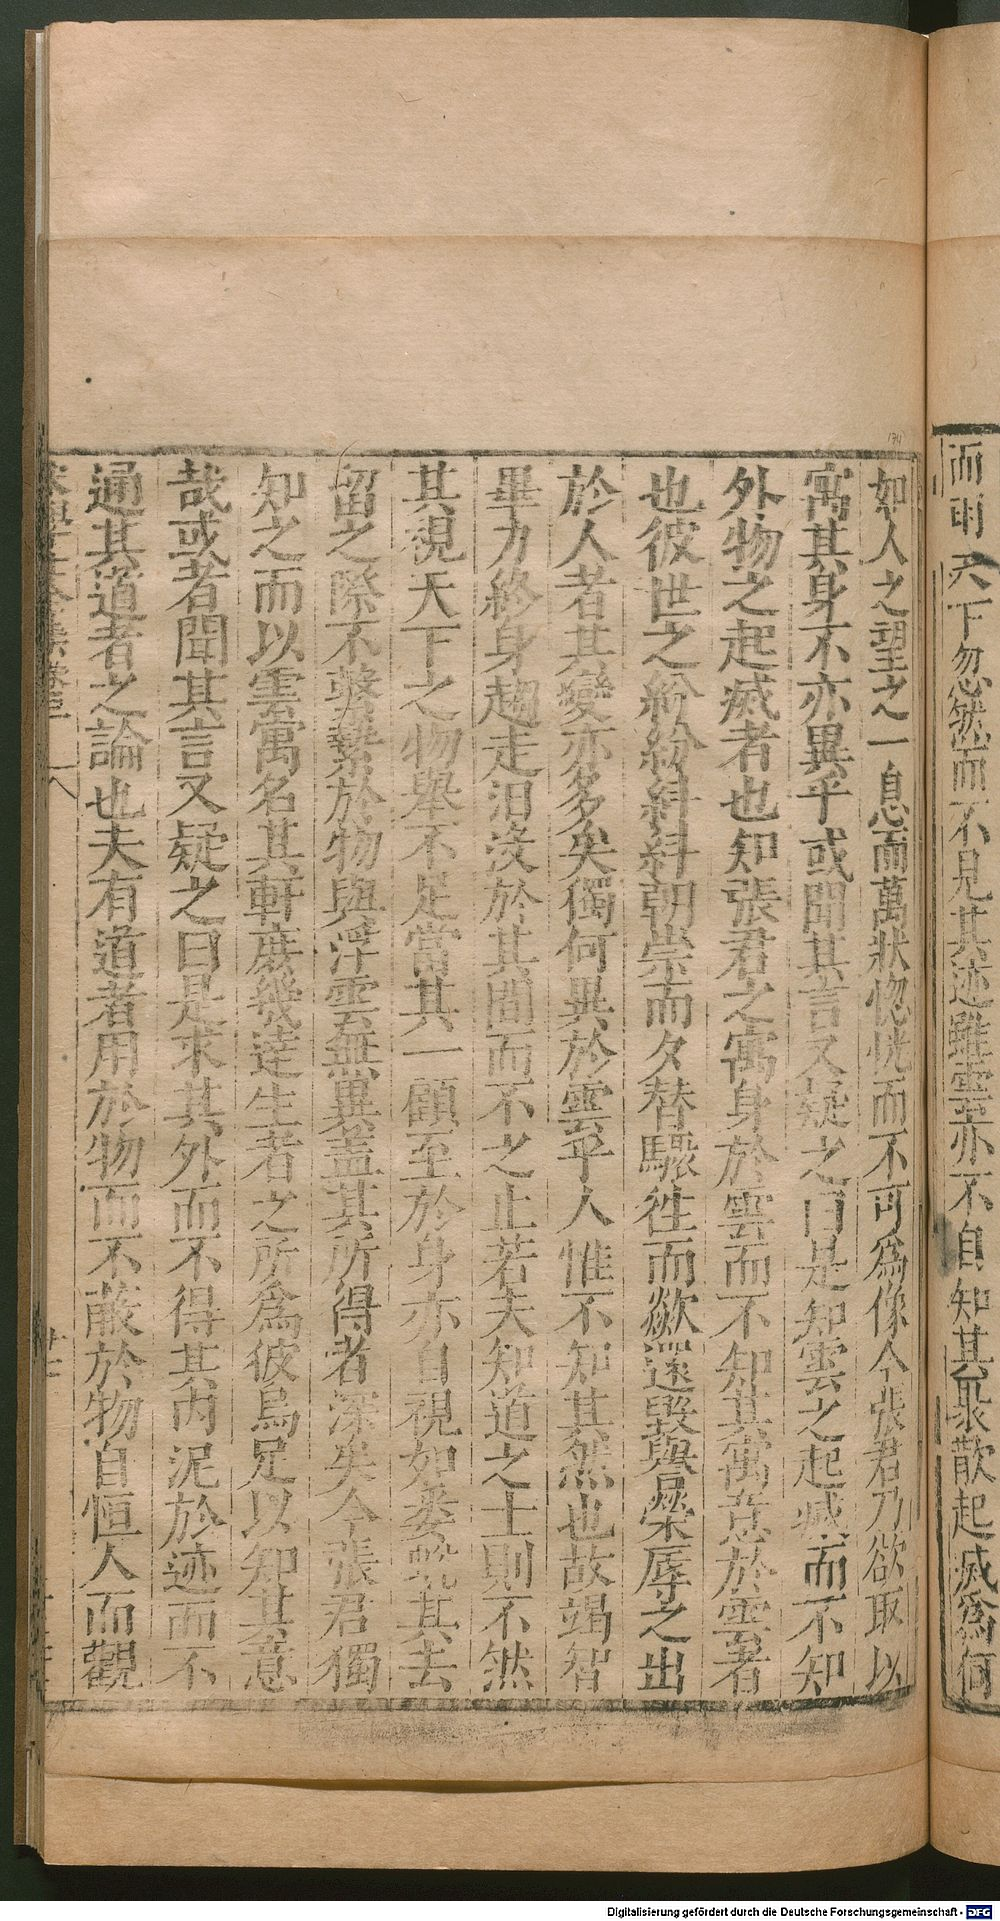 而明天下忽然而不見其迹雖雲亦不自知其聚散起滅爲何
如人之望之一息而萬狀惚恍而不可爲像今張君乃欲取以
寓其身不亦異乎或聞其言又疑之曰是知雲之起滅而不知
外物之起滅者也知張君之寓身於雲而不知其寓意於雲者
也彼世之紛紛糾糾朝崇而夕替驟徃而歘還毀與榮辱之出
於人者其變亦多矣獨何異於雲乎人惟不知其然也故竭智
畢力終身趨走汩沒於其間而不之止若夫知道之士則不然
其視天下之物舉不足當其一顧至於身亦自視如委蛻其去
留之際不繫累於物與浮雲無異盖其所得者深矣今張君獨
知之而以雲寓名其軒庶幾達生者之所爲彼烏足以知其意
哉或者聞其言又疑之曰是求其外而不得其内泥於迹而不
通其道者之論也夫有道者用於物而不蔽於物自恒人而觀
134
Digitalisierung gefördert durch die Deutsche Forschungsgemeinschaft - DFG